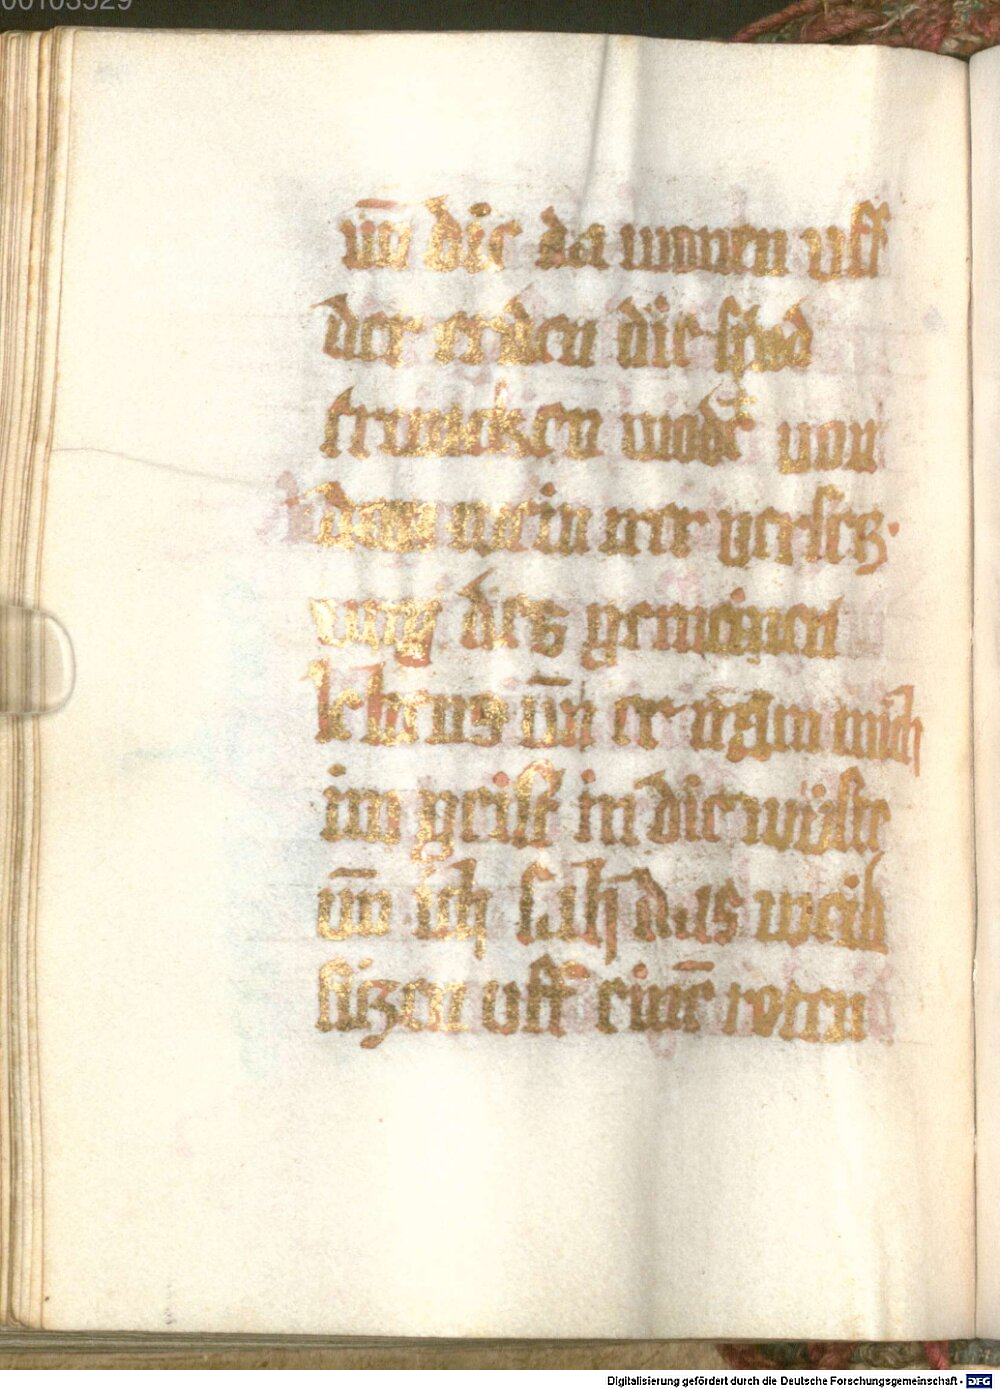 00103529
vn̄ die da wonen vff
der erden die sind
truncken wodē von
dem wein irer versez·
ung des gemeinen
lebens vn̄ er nam mich
im geist in die wüste
vn̄ ich sah das weib
sizen vff einē roten
Digitalisierung gefördert durch die Deutsche Forschungsgemeinschaft - DFG